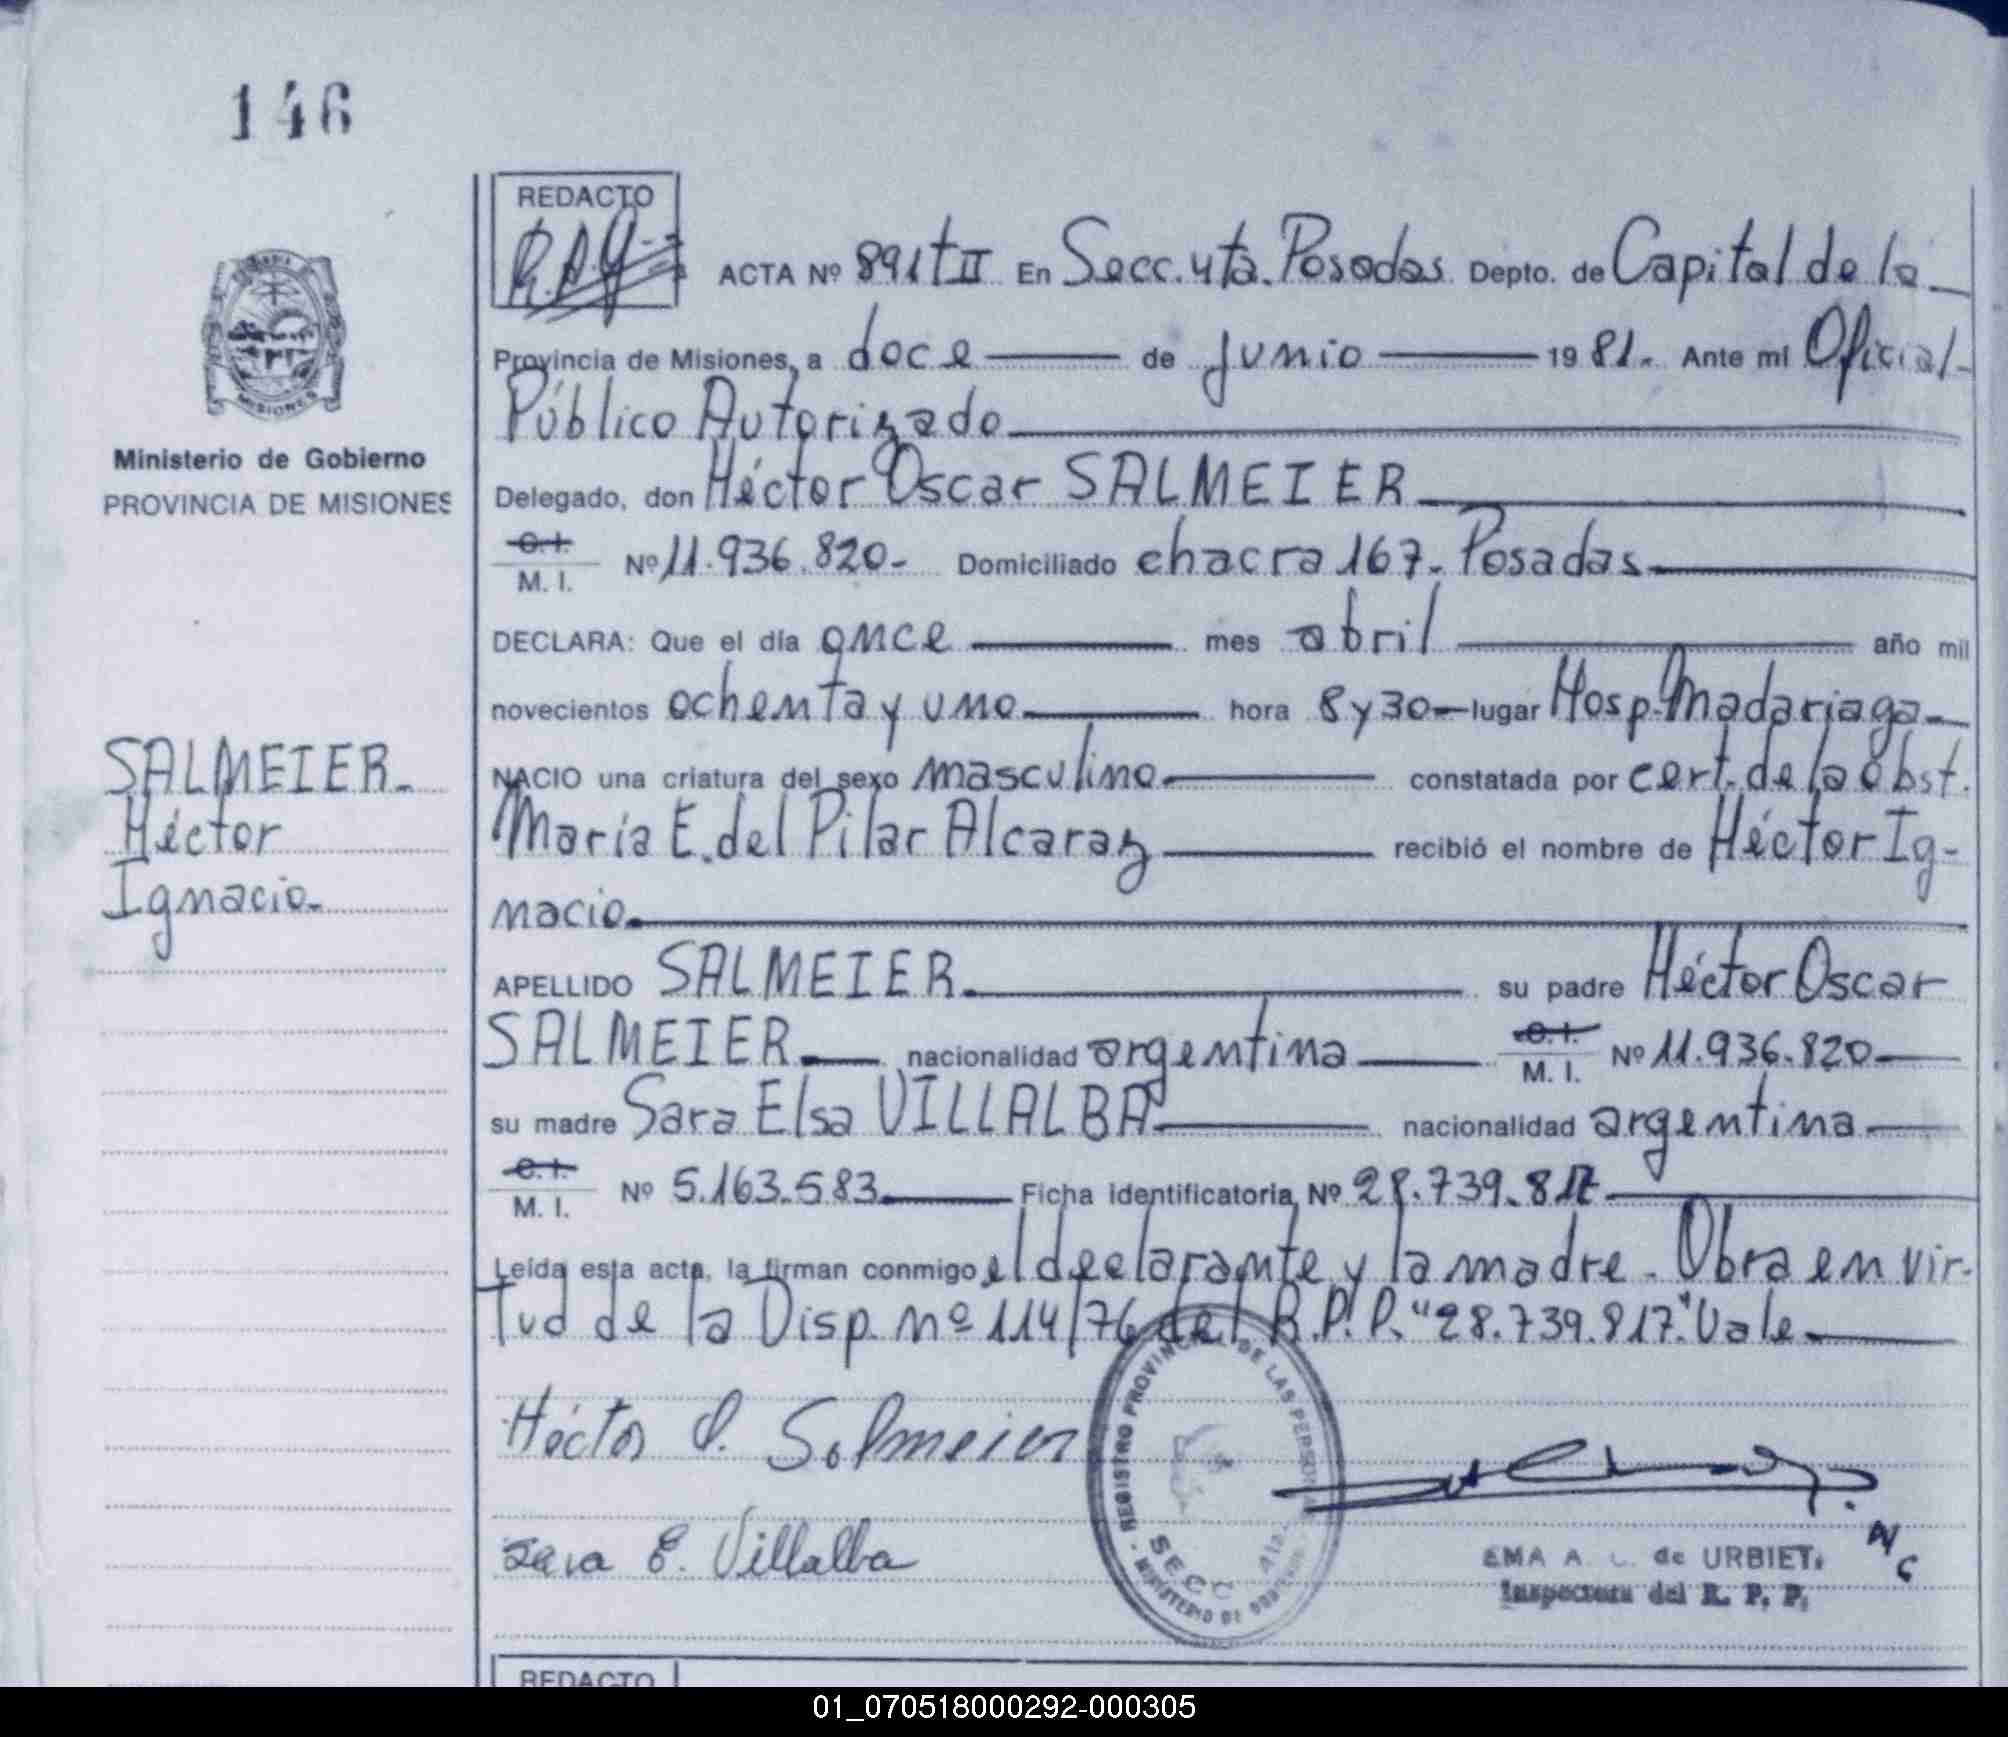 146
REDACTO
ACTA Nº 891 t II En Secc. 4ta. Posadas Depto. de Capital de la
Provincia de Misiones, a doce de junio 1981.- Ante mi Oficial
Público Autorizado
Delegado, don Héctor Oscar SALMEIER
C.I.
M. I. Nº 11.936.820- Domiciliado chacra 167. Posadas
DECLARA: Que el día once mes abril año mil
novecientos ochenta y uno hora 8 y 30 lugar Hosp. Madariaga
NACIO una criatura del sexo masculino constatada por cert. de la obst.
María E. del Pilar Alcaraz recibió el nombre de Héctor Ig-
nacio.
APELLIDO SALMEIER su padre Héctor Oscar
SALMEIER nacionalidad argentina C.I. M. I. Nº 11.936.820
su madre Sara Elsa VILLALBA nacionalidad argentina
C.I.
M. I. Nº 5.163.583 Ficha identificatoria Nº 28.739.817
Leída esta acta, la firman conmigo el declarante y la madre. Obra en vir-
tud de la Disp. nº 114/76 del R.P.P. "28.739.817." Vale
Héctor O. Salmeier
Sara E. Villalba
REGISTRO PROVINCIAL DE LAS PERSONAS
MINISTERIO DE GOBIERNO
SECC 4ta.
EMA A. de URBIET
Inspectora del R. P. P.
REDACTO
MISIONES
Ministerio de Gobierno
PROVINCIA DE MISIONES
SALMEIER.
Héctor
Ignacio.
01_070518000292-000305